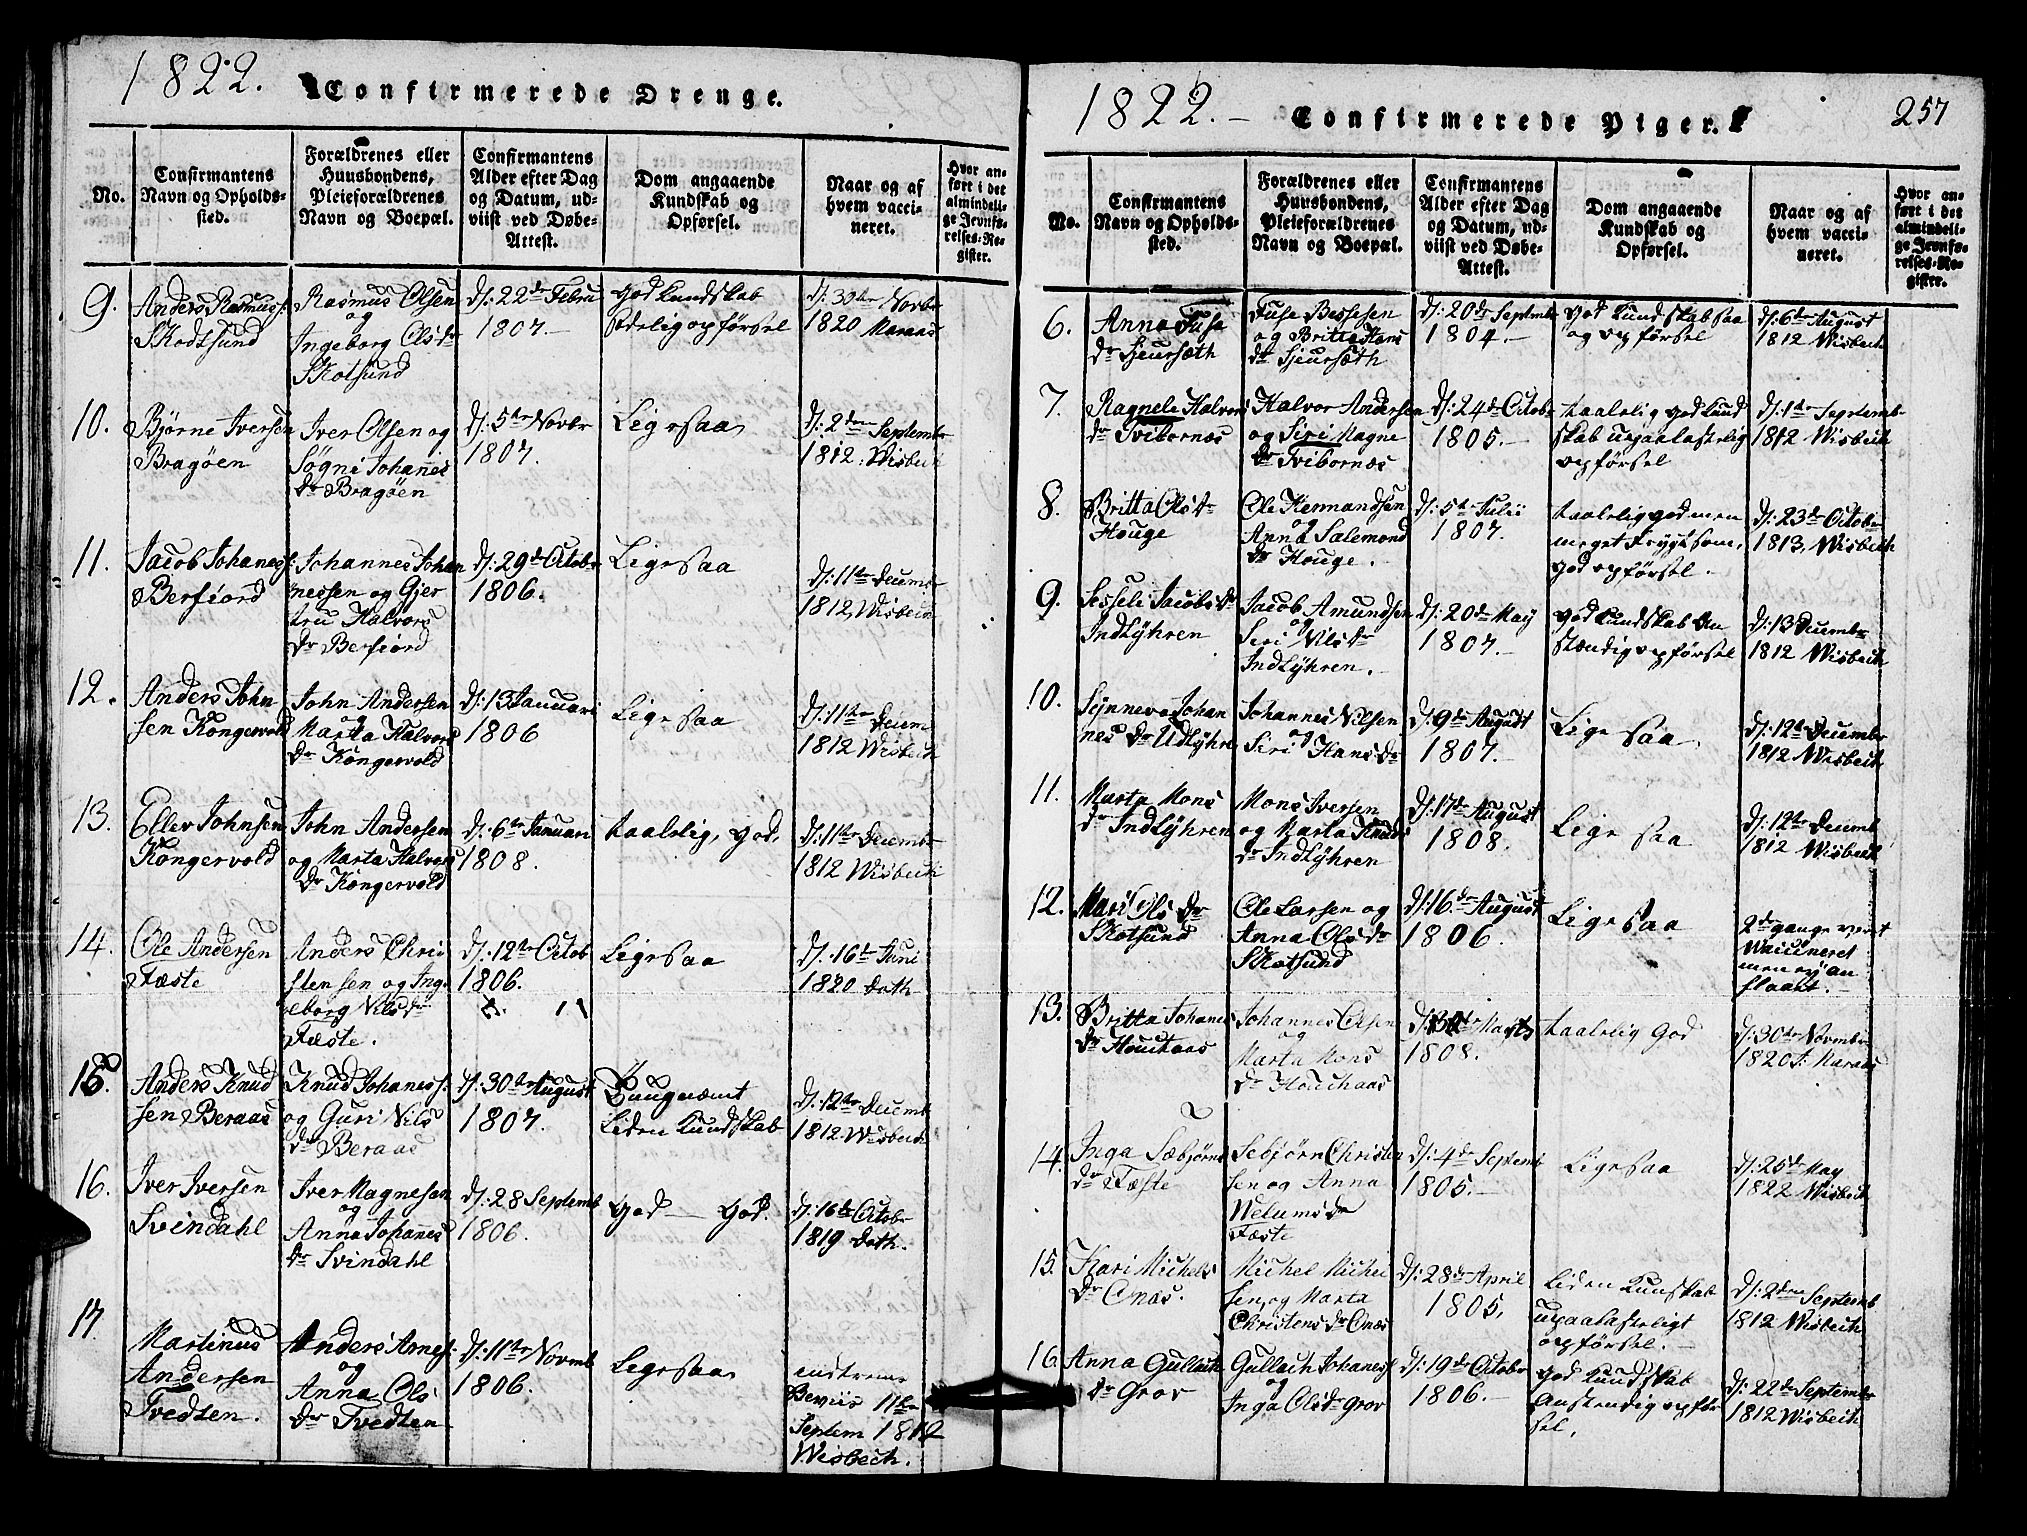 1822. Confirmerede Drenge.
No.
Confirmantens
Navn og Opholds-
sted.
Forældrenes eller
Huusbondens,
Pleieforældrenes
Navn og Boepæl.
Confirmantens
Alder efter Dag
og Datum, ud-
viist ved Døbe-
Attest.
Dom angaaende
Kundskab og
Opførsel.
Naar og af
hvem vacci-
neret.
Hvor an-
ført i det
almindeli-
ge Jevnfø-
relses-Re-
gister.
9.
Anders Rasmuss:
Skodtsund
Rasmus Olsen
og
Ingeborg Olsdr
Skotsund
d/: 22de Febru
1807.
god kundskab
sædelig opførsel
d/: 30te Novbr
1820 Maraas
10.
Bjørne Iversen
Bragøen
Iver Olsen og
Søgni Johanes
dr Bragøen
d/: 5te Novbr
1807.
Ligesaa
d/: 2den Septembr
1812. Wisbech
11.
Jacob Johaness:
Berfiord
Johannes Johan
nessen og Gjer
tru Halvors
dr Berfiord
d/: 29de Octobr
1806.
Ligesaa
d/: 11te Decembr
1812, Wisbech
12.
Anders John
sen Kongervold
John Andersen
og
Marta Halvors
dr Kongervold
d/: 13 Januari
1806
Ligesaa
d/: 11te Decem
1812 Wisbech
13.
Ellev Johnsen
Kongervold
John Andersen
og Marta Halvors
dr Kongervold
d/: 6te Januari
1808.
taalelig, god,
d/: 11te Decembr
1812 Wisbech
14.
Ole Andersen
Fæste
Anders Chri
stensen og Inge
eborg Nilsdr
Fæste.
d/: 12te Octob
1806.
Ligesaa
d/: 16te Juni
1820 Dath
15.
Anders Knud
sen Beraas
Knud Johaness:
og Guri Nils
dr Beraas
d/: 30te August
1807.
Tungnæmt
Liden Kundskab
d/: 12te Decemb
1812. Wisbech
16.
Iver Iversen
Svindahl
Iver Magnesen
og
Anna Johanes
dr Svindahl
d/: 28 Septemb
1806.
god — god.
d/: 16de Octobr
1819 Dath.
17
Martinus
Andersen
Tvedten.
Anders Arnes:
og
Anna Ols
dr Tvedten
d/: 11te Novemb
1806.
Ligesaa
Beviis 11te
Septem 1812
Wisbech.
1822. — Confirmerede Piger. 257
No.
Confirmantens
Navn og Opholds-
sted.
Forældrenes eller
Huusbondens,
Pleieforældrenes
Navn og Boepæl.
Confirmantens
Alder efter Dag
og Datum, ud-
viist ved Døbe-
Attest.
Dom angaaende
Kundskab og
Opførsel.
Naar og af
hvem vacci-
neret.
Hvor an-
ført i det
almindeli-
ge Jevnfø-
relses-Re-
gister.
6.
Anna Fuse
dr Sjeursæth
Fuse Bessesen
og Britta Hans
dr Sjeursæth
d/: 20de Septembr
1804.—
god kundskab saa
og opførsel
d/: 6te August
1812 Wisbech
7.
Ragnele Halvors
dr Tvibornæs
Halvor Andersen
og Siri Magne
dr Tvibornæs
d/: 24de Octobr
1805.—
taalelig god kund
skab upaaklastelig
opførsel
d/: 1te Septembr
1812 Wisbech
8.
Britta Olsdr
Houge
Ole Hermandsen
og
Anna Salemond
dr Houge.
d/: 5te Julii
1807.
taalelig god men
meget frygtsom,
god opførsel.
d/: 23de Octobr
1813. Wisbech
9.
Sesseli Jacobsdr
Indlyhren
Jacob Amundsen
og
Siri Nilsdr
Indlyhren.
d/: 20de May
1807.—
god kundskab an
stændig opførsel
d/: 13 Decembr
1812 Wisbech
10.
Synneva Johan
nes dr Udlyhre
Johannes Nilsen
og
Siri Hansdr
d/: 9de August
1807.—
Lige saa
d/: 12te Decembr
1812 Wisbech
11.
Marta Mons
dr Indlyhren
Mons Iversen
og Marta Knuds
dr Indlyhren
d/: 17de August
1808.
Lige saa
d/: 12te Decemb
1812 Wisbech
12.
Mari Ols dr
Skotsund
Ole Larsen og
Anna Olsdr
Skotsund
d/: 16.de August
1806.
Ligesaa
2de gange veret
Waccineret
men ej an
slaaet.—
13.
Britta Johanes
dr Houchaas
Johannes Olsen
og
Marta Mons
dr Houchaas
Marts
1808.
taalelig god
d/: 30te Novembr
1820 Maraas
14.
Inga Sæbjørns
dr Fæste
Sebjørn Christen
sen og Anna
Welumsdr
Fæste
d/: 4de Septemb
1805.—
Ligesaa
d/: 25de May
1822 Wisbech
15.
Kari Michels
dr Onæs.
Michel Michel
sen, og Marta
Christens dr Onæs
d/: 28de April
1805,
Liden Kunskab
upaaklasteligt
opførsel.—
d/: 2den Septemb
1812 Wisbech
16.
Anna Gullach
dr Grov
Gullach Johaness:
og
Inga Olsdr Grov
d/: 19de Octobr
1806.—
god Kundskab
Anstendig opfør
sel,
d/: 22de Septembr
1812 Wisbech